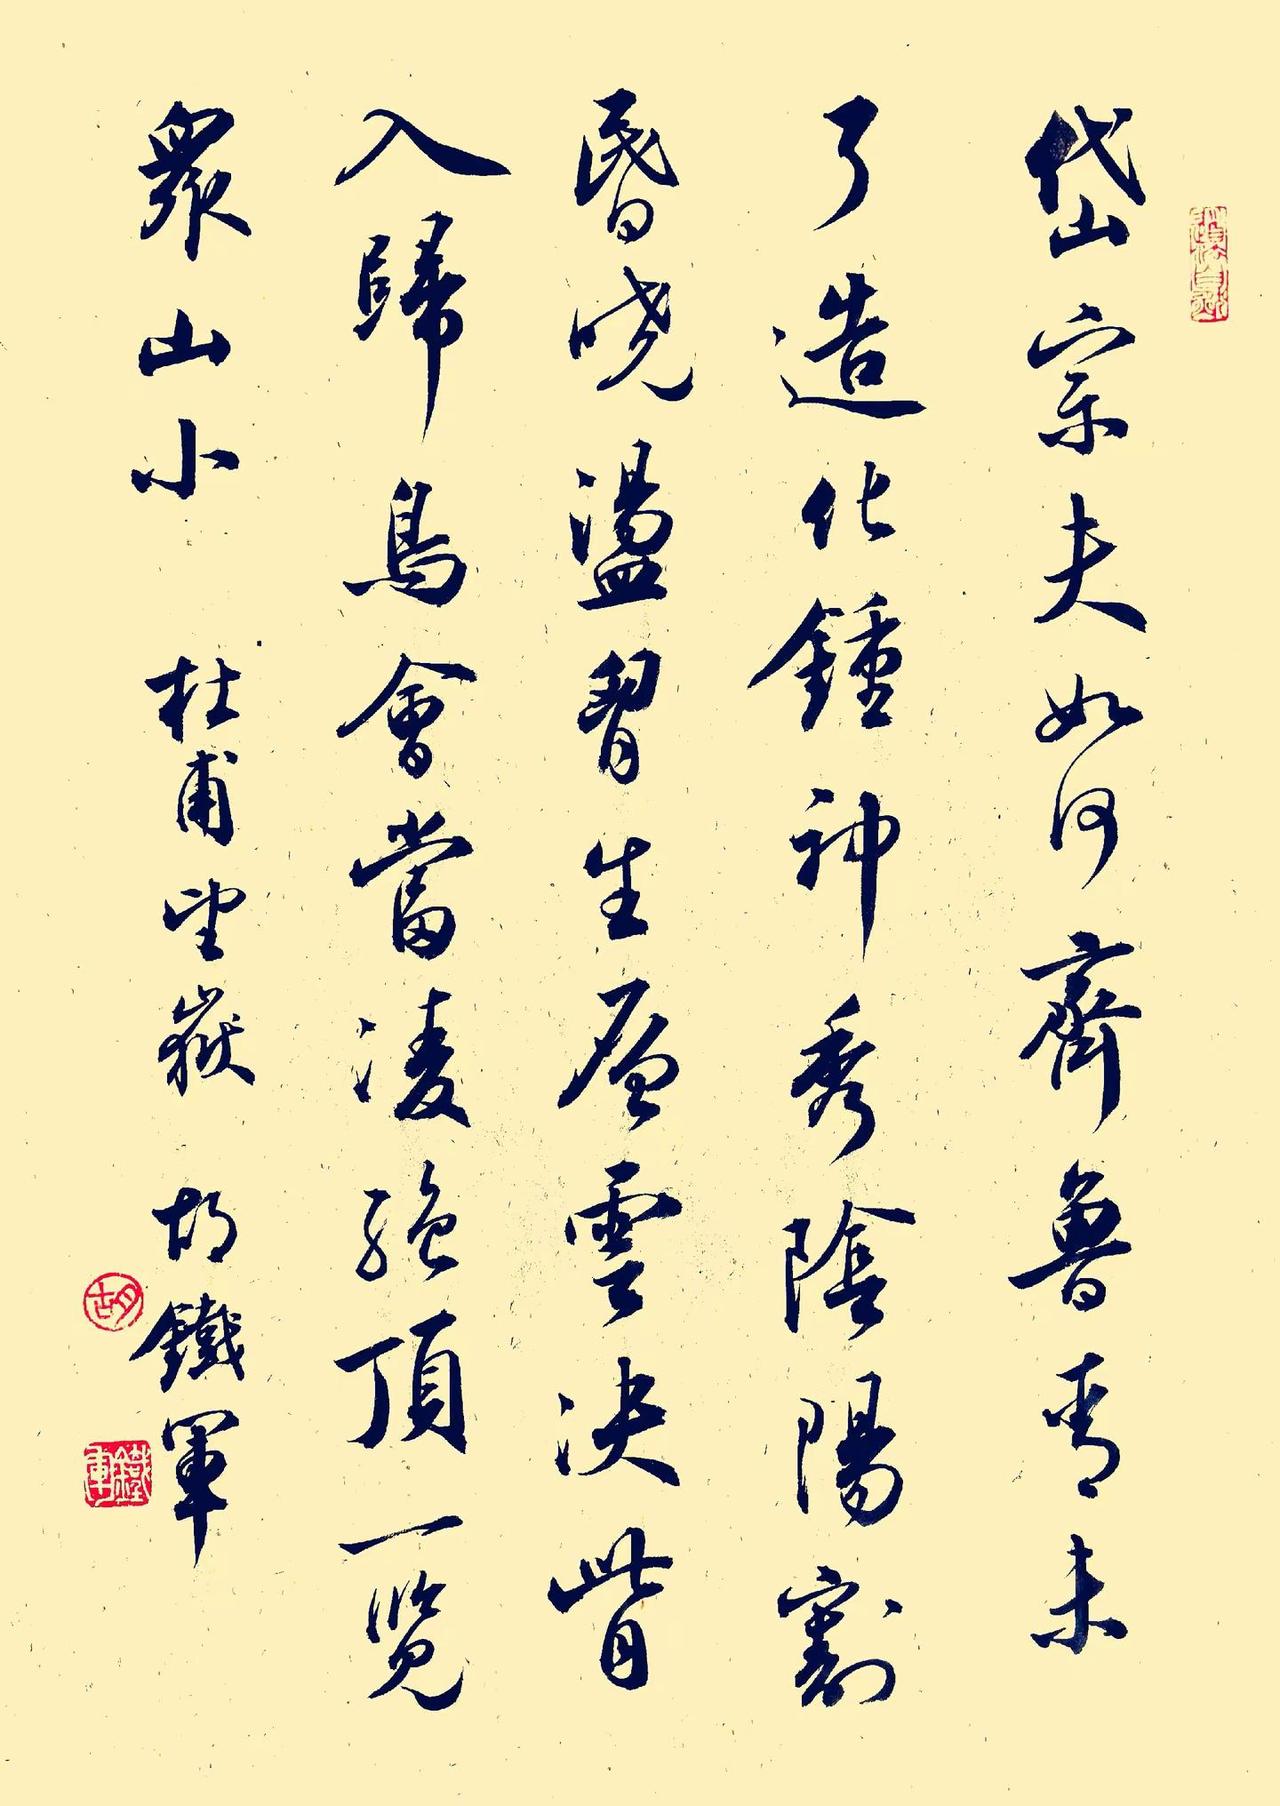 岱宗夫如何齊魯青未
了造化鍾神秀陰陽割
昬晓盪胷生層雲決眥
入歸鳥會當凌絕頂一览
眾山小 杜甫望嶽 胡鐵軍
胡
鐵軍